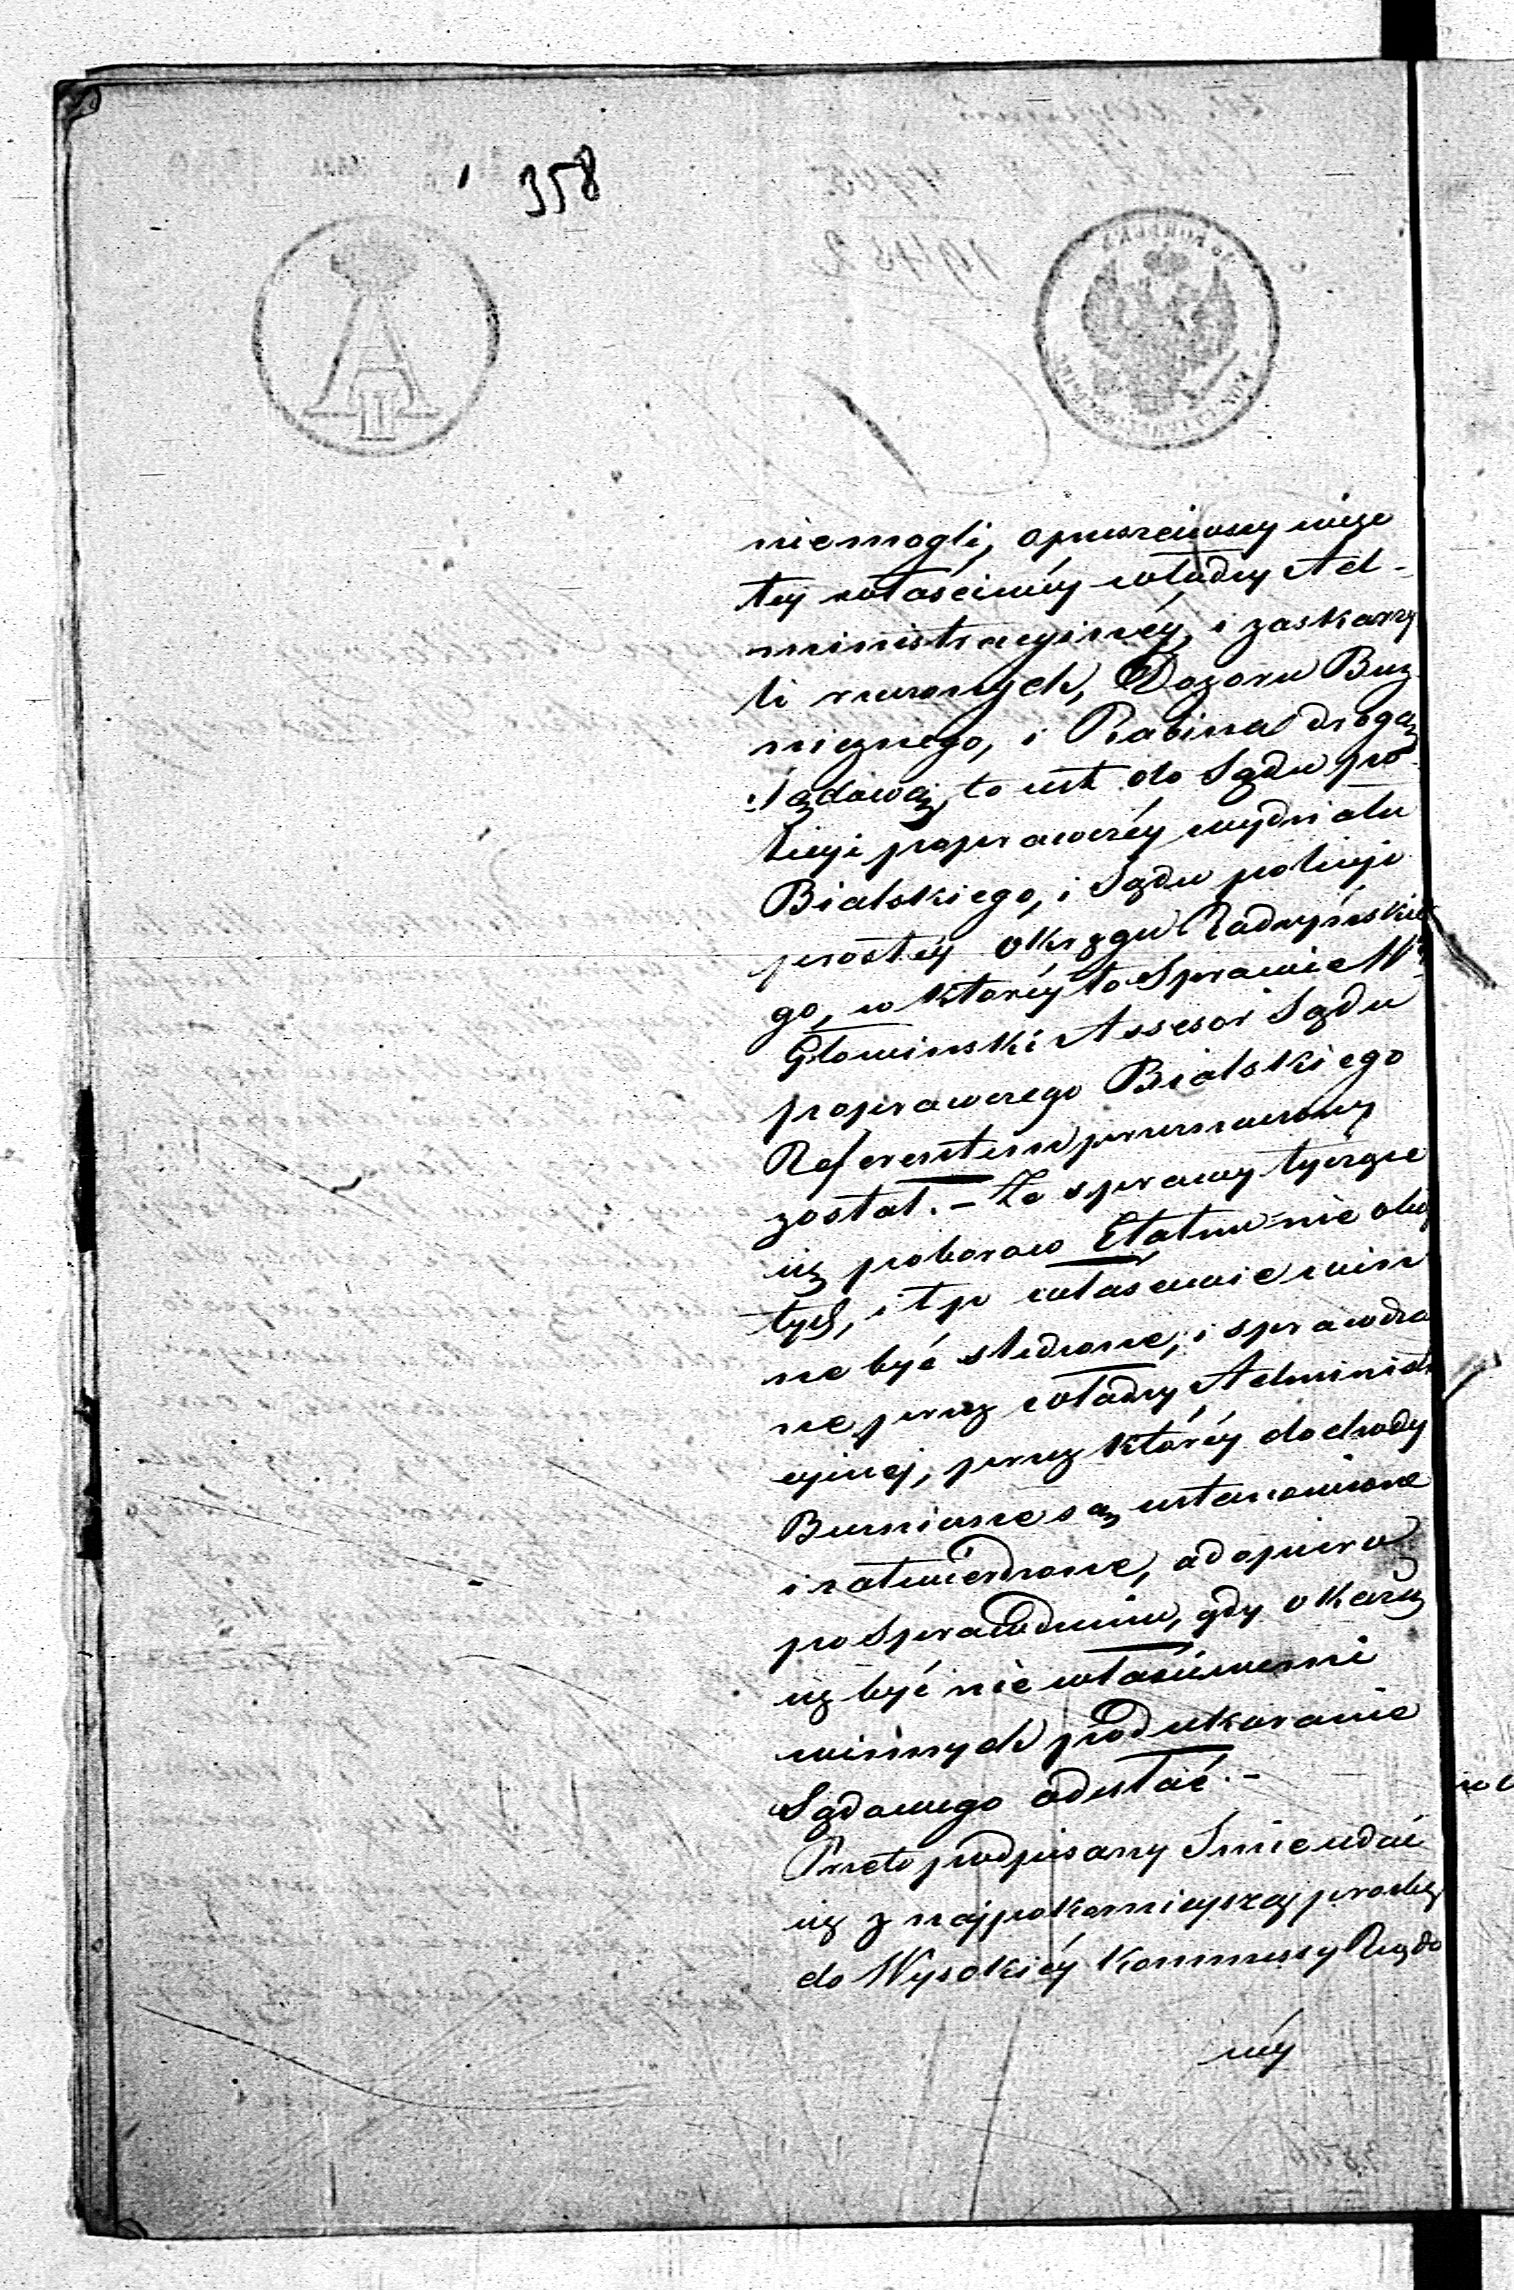 358
niemogli, opuściwszy więc
tey właściwéy władzy Ad-
ministracyinéy, i zaskarzy
li rzeczonych, Dozoru Buz
nicznego, i Rabina drogą
Sądową, to iest do Sądu po-
licyi poprawczéy wydziału
Bialskiego, i Sądu policyi
prostéy okręgu Radzyńskie
go, w któréy to Sprawie W.
Głowinski Assesor Sądu
poprawczego Bialskiego
Referentem przeznaczony
został. – Że sprawy tyczące
się poborow Etatem nie obię
tych, i t p właściwie win
ne być śledzone, i sprawdzo
ne przez władzy Administr
cyinej, przez któréy dochody
Bużnicze są ustanowione
i zatwierdzone, a dopiero
po Sprawdzeniu, gdy okażą
się być nie właściwemi
winnych pod ukaranie
Sądowego odesłać. –
Przeto podpisany Śmie udać
się z najpokorniejszą prozbą
do Wysokiéy Kommissy Rządo
wéy